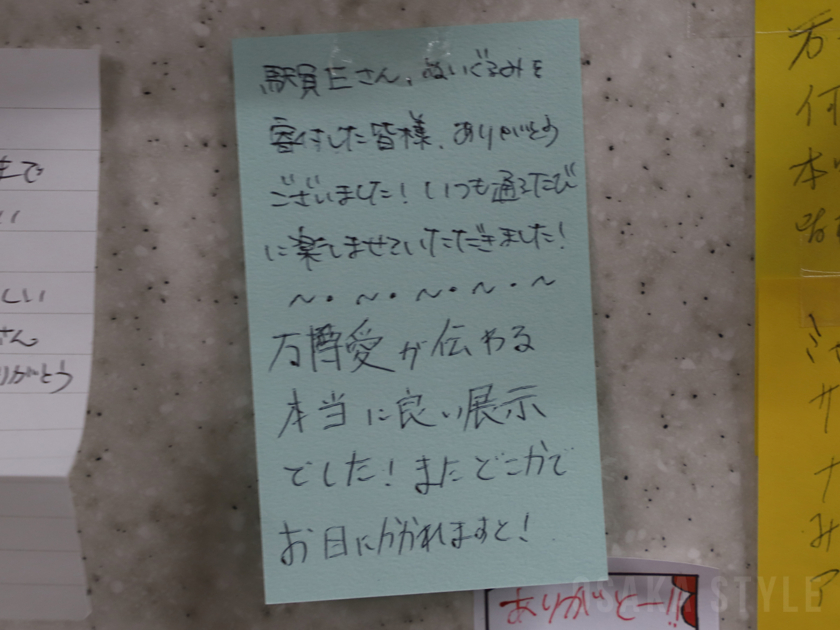 駅員Eさん、ぬいぐるみを
寄付した皆様、ありがとう
ございました!いつも通るたび
に楽しませていただきました!
〜・〜・〜・〜・〜
万博愛が伝わる
本当に良い展示
でした!またどこかで
お目にかかれますと!
ありがとー!!
まで
しい
さん
りがとう
方
何
本
み
OSAKA STYLE